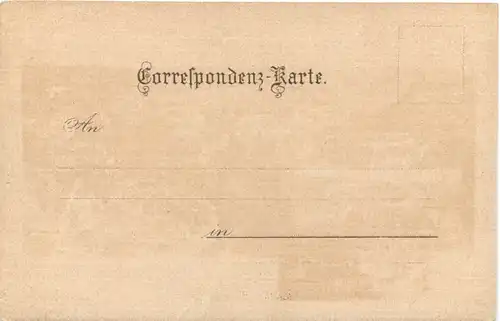 Correspondenz-Karte.
An
in